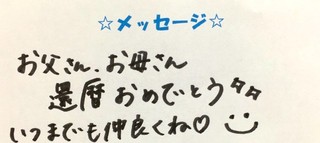 ☆メッセージ☆
お父さん、お母さん
還暦おめでとう
いつまでも仲良くね♡